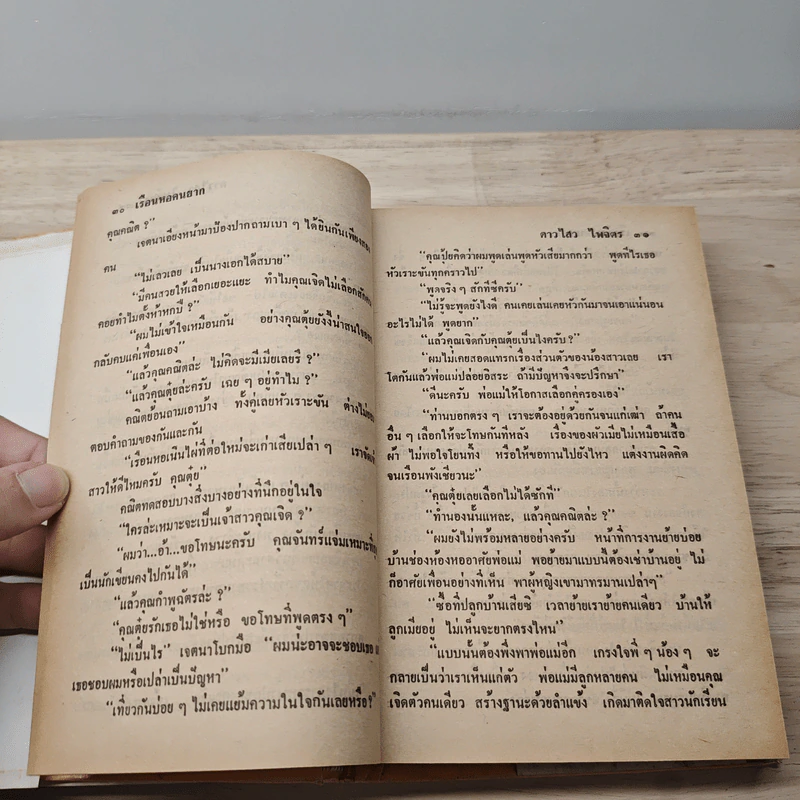 ๓๐ เรือนหอคนยาก
คุณคณิต ?"
เจตนาเอียงหน้ามาป้องปากถามเบา ๆ ได้ยินกันเพียงสอง
คน
"ไม่เลวเลย เป็นนางเอกได้สบาย"
"มีคนสวยให้เลือกเยอะแยะ ทำไมคุณเจิดไม่เลือกสักคน
คอยทำไมตั้งห้าหกปี ?"
"ผมไม่เข้าใจเหมือนกัน อย่างคุณตุ้ยยังงี้น่าสนใจออก
กลับคบแค่เพื่อนเอง"
"แล้วคุณคณิตล่ะ ไม่คิดจะมีเมียเลยรึ ?"
"แล้วคุณตุ๋ยล่ะครับ เฉย ๆ อยู่ทำไม ?"
คณิตย้อนถามเอาบ้าง ทั้งคู่เลยหัวเราะขัน ต่างไม่
ตอบคำถามของกันและกัน
"เรือนหอเนินไผ่ที่ต่อใหม่จะเก่าเสียเปล่า ๆ เราจัด
สาวให้ดีไหมครับ คุณตุ๋ย"
คณิตทดสอบบางสิ่งบางอย่างที่นึกอยู่ในใจ
"ใครล่ะเหมาะจะเป็นเจ้าสาวคุณเจิด ?"
"ผมว่า...อ้า...ขอโทษนะครับ คุณจันทร์แจ่มเหมาะที่สุด
เป็นนักเขียนคงไปกันได้"
"แล้วคุณกำพูฉัตรล่ะ ?"
"คุณตุ๋ยรักเธอไม่ใช่หรือ ขอโทษที่พูดตรง ๆ"
"ไม่เป็นไร" เจตนาโบกมือ "ผมน่ะอาจจะชอบเธอ
เธอชอบผมหรือเปล่าเป็นปัญหา"
"เที่ยวกันบ่อย ๆ ไม่เคยแย้มความในใจกันเลยหรือ?"
ดาวไสว ไพจิตร ๓๑
"คุณปุ้ยคิดว่าผมพูดเล่นพูดหัวเสียมากกว่า พูดทีไรเธอ
หัวเราะขันทุกคราวไป"
"พูดจริง ๆ สักทีซีครับ"
"ไม่รู้จะพูดยังไงดี คนเคยเล่นเคยหัวกันมาจนเอาแน่นอน
อะไรไม่ได้ พูดยาก"
"แล้วคุณเจิดกับคุณตุ้ยเป็นไงครับ?"
"ผมไม่เคยสอดแทรกเรื่องส่วนตัวของน้องสาวเลย เรา
โตกันแล้วพ่อแม่ปล่อยอิสระ ถ้ามีปัญหาจึงจะปรึกษา"
"ดีนะครับ พ่อแม่ให้โอกาสเลือกคู่ครองเอง"
"ท่านบอกตรง ๆ เราจะต้องอยู่ด้วยกันจนแก่เฒ่า ถ้าคน
อื่น ๆ เลือกให้จะโทษกันทีหลัง เรื่องของผัวเมียไม่เหมือนเสื้อ
ผ้า ไม่พอใจโยนทิ้ง หรือให้ขอทานไปยังไหว แต่งงานผิดคิด
จนเรือนพังเชียวนะ"
"คุณตุ้ยเลยเลือกไม่ได้ซักที"
"ทำนองนั้นแหละ, แล้วคุณคณิตล่ะ ?"
"ผมยังไม่พร้อมหลายอย่างครับ หน้าที่การงานย้ายบ่อย
บ้านช่องห้องหออาศัยพ่อแม่ พอย้ายมาแบบนี้ต้องเช่าบ้านอยู่ ไม่
ก็อาศัยเพื่อนอย่างที่เห็น พาผู้หญิงเขามาทรมานเปล่าๆ"
"ซื้อที่ปลูกบ้านเสียซิ เวลาย้ายเราย้ายคนเดียว บ้านให้
ลูกเมียอยู่ ไม่เห็นจะยากตรงไหน"
"แบบนั้นต้องพึ่งพาพ่อแม่อีก เกรงใจพี่ ๆ น้อง ๆ จะ
กลายเป็นว่าเราเห็นแก่ตัว พ่อแม่มีลูกหลายคน ไม่เหมือนคุณ
เจิดตัวคนเดียว สร้างฐานะด้วยลำแข้ง เกิดมาติดใจสาวนักเรียน